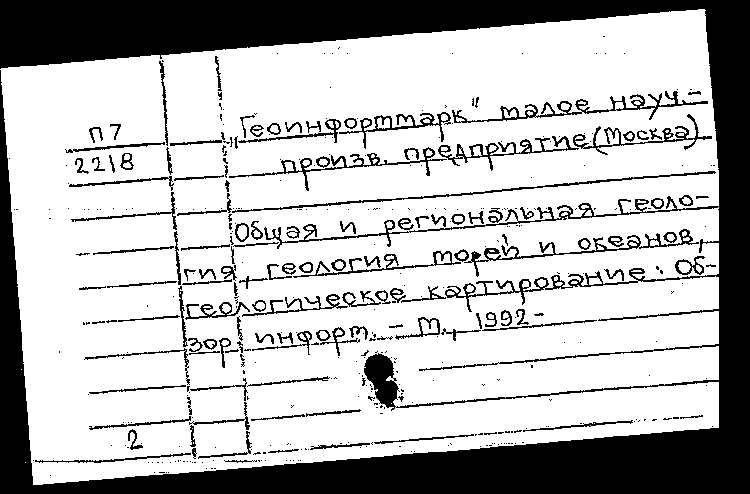 П7
2218
„Геоинформмарк" малое науч.-
произв. предприятие (Москва)
Общая и региональная геоло-
гия, геология морей и океанов,
геологическое картирование: Об-
зор. информ. - М., 1992-
2